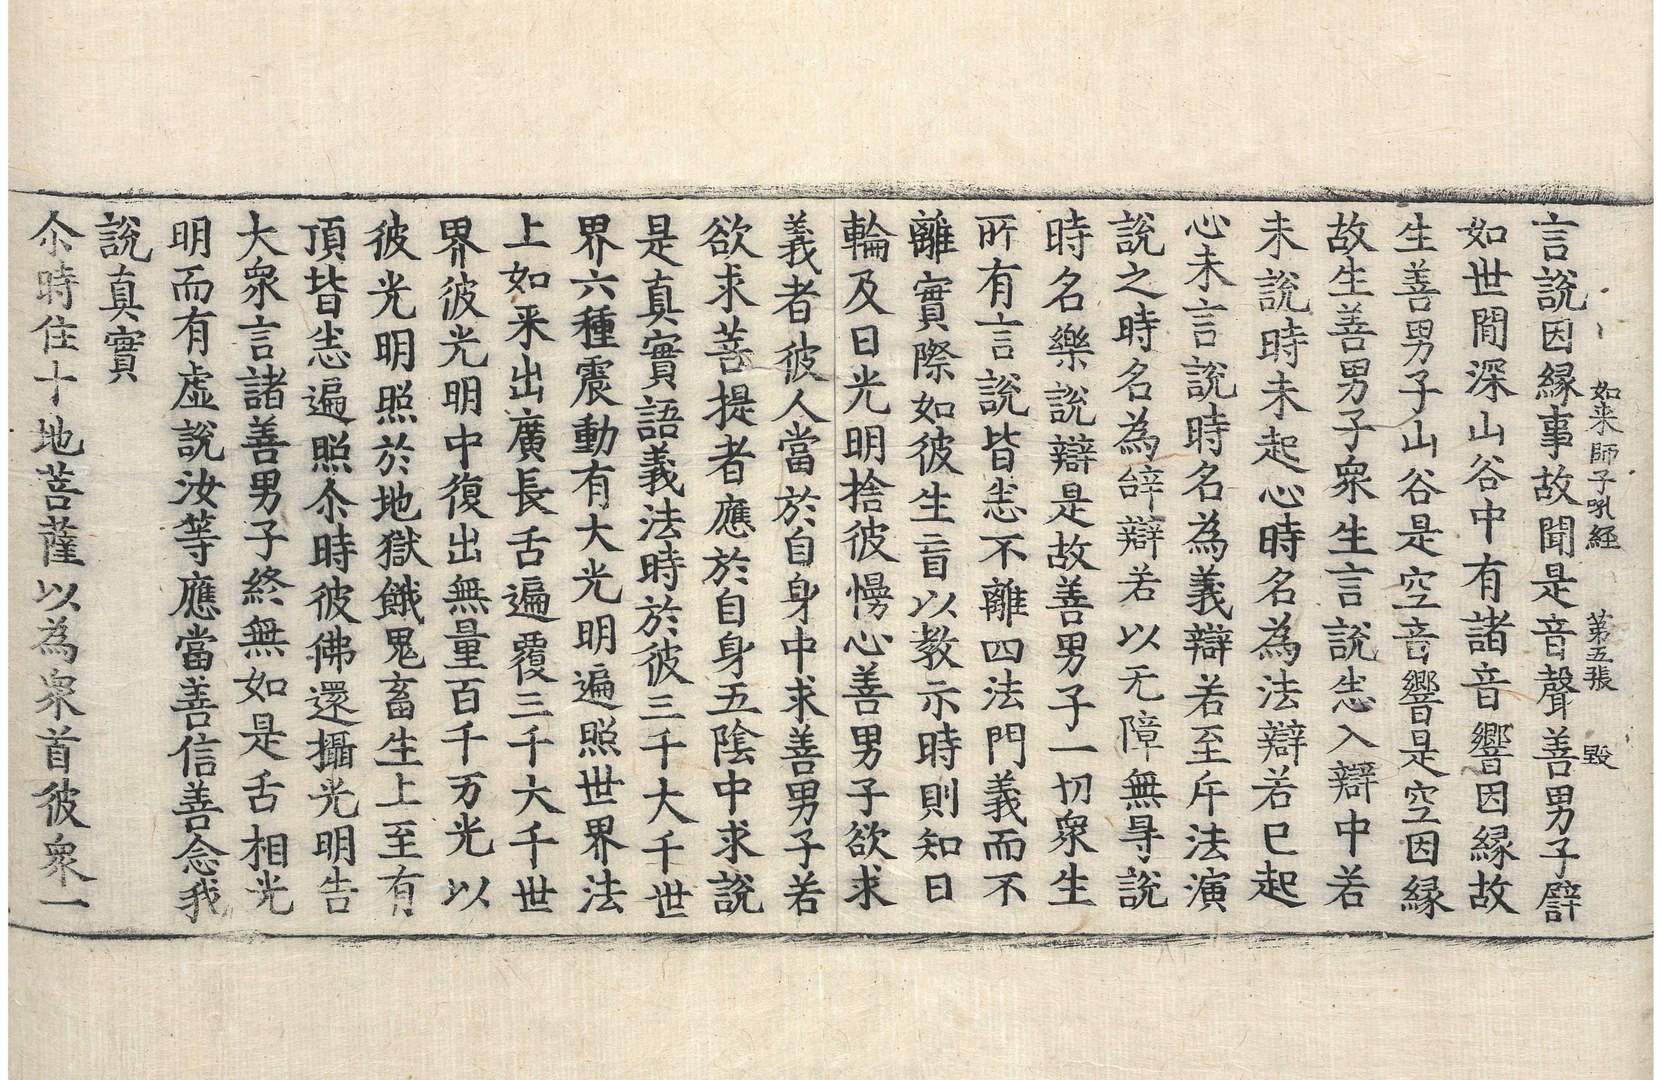 如来師子吼經　第五張　毀
言說因緣事故聞是音聲善男子譬
如世間深山谷中有諸音響因緣故
生善男子山谷是空音響是空因緣
故生善男子衆生言說悉入辯中若
未說時未起心時名為法辯若已起
心未言說時名為義辯若至斤法演
說之時名為辝辯若以无障無㝵說
時名樂說辯是故善男子一切衆生
所有言說皆悉不離四法門義而不
離實際如彼生盲以教示時則知日
輪及日光明捨彼慢心善男子欲求
義者彼人當於自身中求善男子若
欲求菩提者應於自身五陰中求說
是真實語義法時於彼三千大千世
界六種震動有大光明遍照世界法
上如来出廣長舌遍覆三千大千世
界彼光明中復出無量百千万光以
彼光明照於地獄餓鬼畜生上至有
頂皆悉遍照尒時彼佛還攝光明告
大衆言諸善男子終無如是舌相光
明而有虛說汝等應當善信善念我
說真實
尒時住十地菩薩以為衆首彼衆一